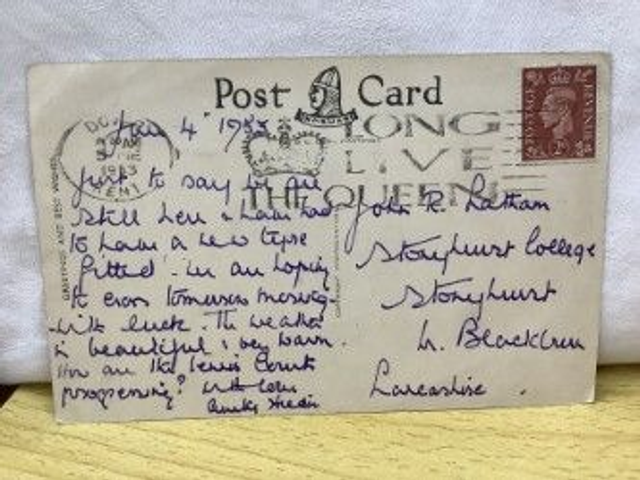 Post Card
LONG
LIVE
THE QUEEN
POSTAGE REVENUE
1953
GREETINGS AND BEST WISHES
4
Just to say we are
still here & have had
to have a new tyre
fitted. We are hoping
to cross tomorrow morning
with luck. The weather
is beautiful & very warm.
How are the tennis courts
progressing? With love
John R. Latham
Stonyhurst College
Stonyhurst
Nr. Blackburn
Lancashire.